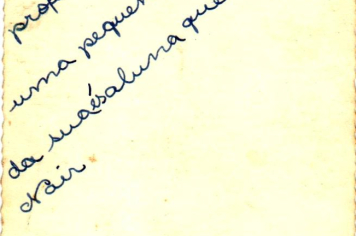 prof
uma pequen
da sua ésaluna que
Nair